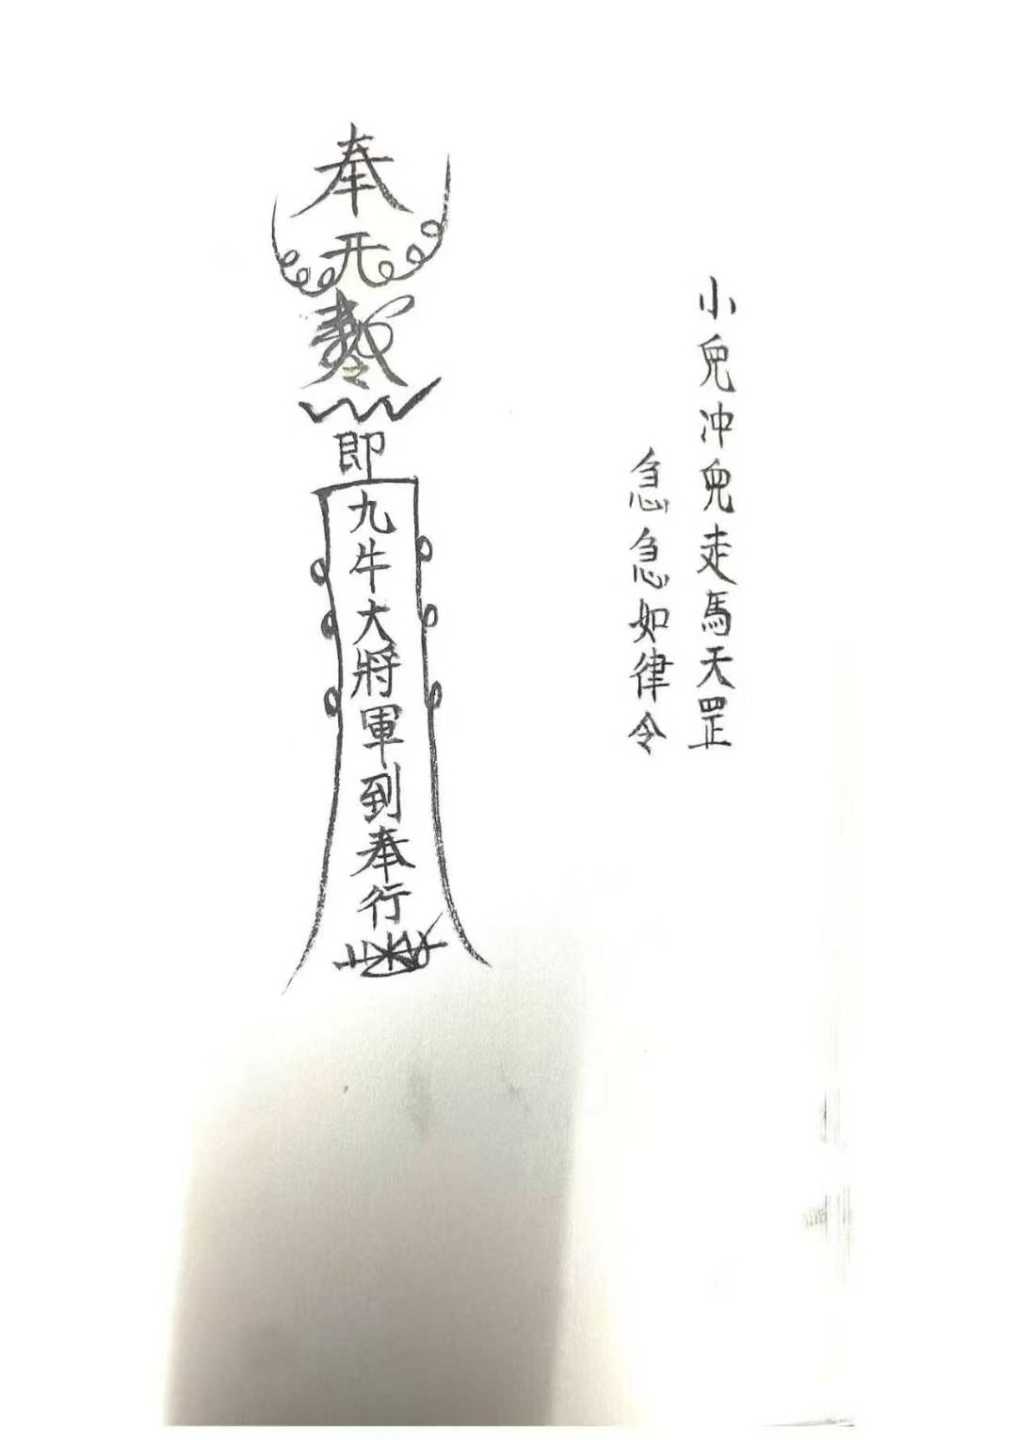 小兒冲兒走馬天罡
急急如律令
奉
即
九牛大將軍到奉行